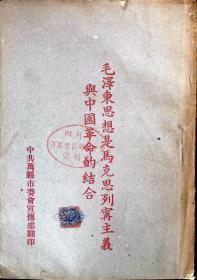 毛澤東思想是馬克思列寧主義
與中國革命的結合
中共萬縣市委會宣傳部翻印